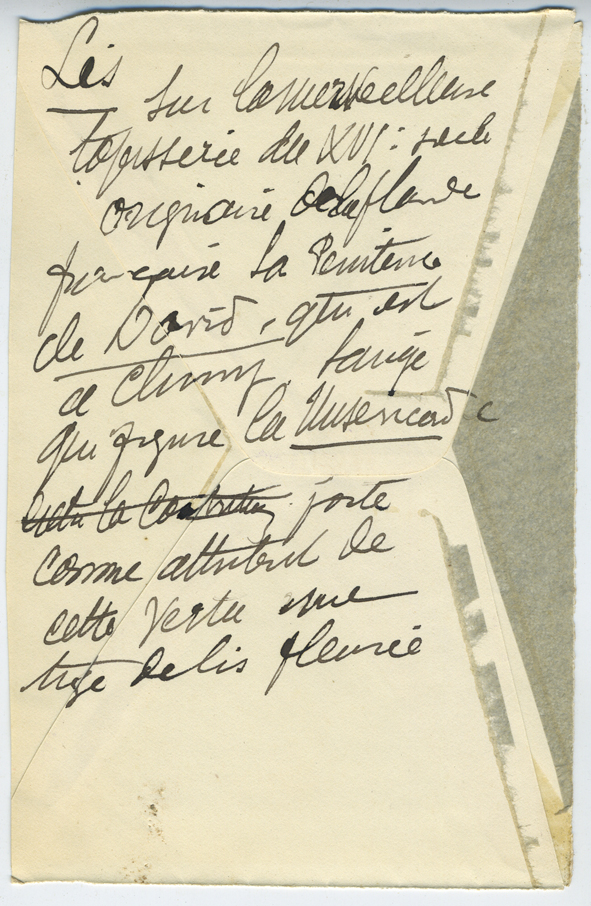 Lis
sur la merveilleuse
tapisserie du XVIe siècle
originaire de la flandre
française la Penitence
de David, qui est
à Cluny, l'ange
qui figure la Misericorde
porte
comme attribut de
cette vertu une
tige de lis fleurie